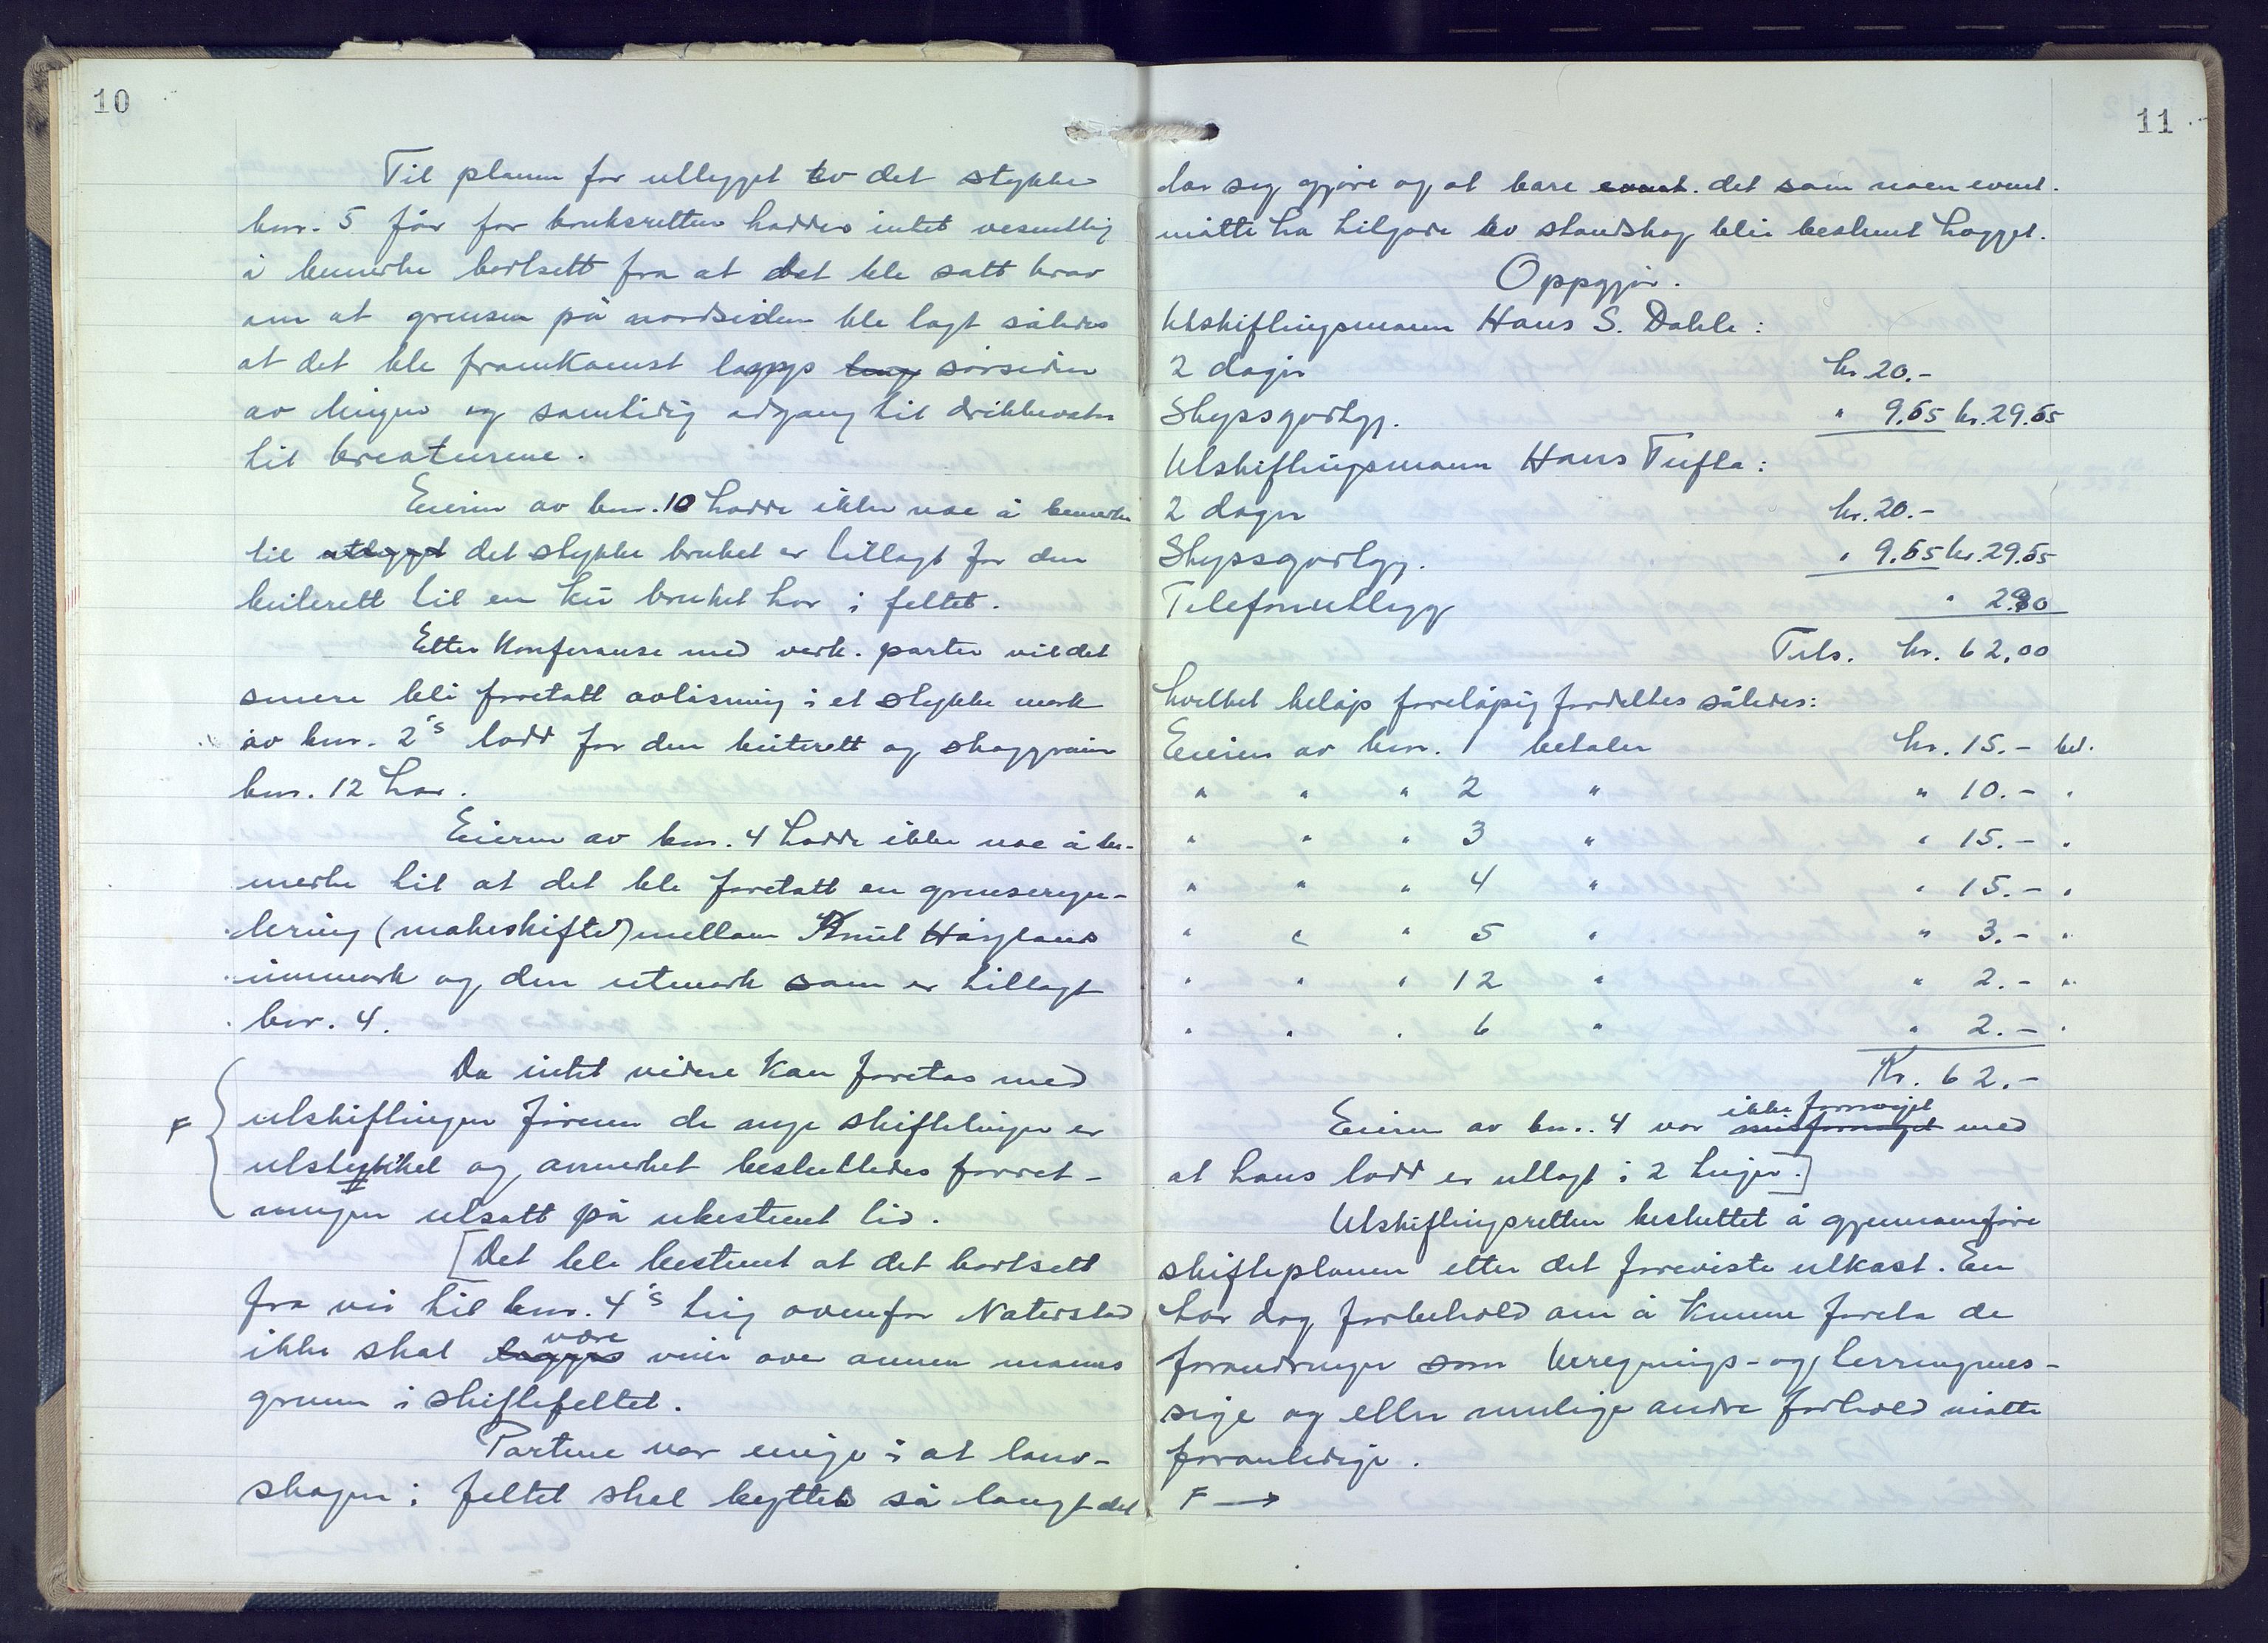 10
Til planen for utlegget av det stykke
bnr. 5 får for bruksretten haddes intet vesentlig
å bemerke bortsett fra at det ble satt krav
om at grensen på nordsiden ble lagt således
at det ble framkomst langs sørsiden
av teigen og samtidig adgang til drikkevatn
til kreaturene.
Eieren av bnr. 10 hadde ikke noe å bemerke
til utlegget det stykke bruket er tillagt for den
beiterett til en ku bruket har i feltet.
Etter konferanse med vedk. parter vil det
senere bli foretatt avløsning i et stykke mark
av bnr. 2's lodd for den beiterett og
bnr. 12 har.
Eieren av bnr. 4 hadde ikke noe å be-
merke til at det ble foretatt en grenseregu-
lering (makeskifte) mellom Knut Høyland
innmark og den utmark som er tillagt
bnr. 4.
Da intet videre kan foretas med
F utskiftingen førenn de nye skiftelinjer er
utstykket og avmerket besluttedes forret-
ningen utsatt på ubestemt tid.
[Det ble bestemt at det bortsett
fra vei til bnr. 4's teig ovenfor Naterstad
ikke skal legges være veier over annen manns
grunn i skiftefeltet.
Partene var enige i at lauv-
skogen i feltet skal byttes så langt det
11
lar seg gjøre og at bare event. det som noen event.
måtte ha tilgode av standskog blir bestemt hogget.
Oppgjør.
Utskiftingsmann Hans S. Dahle:
2 dager kr. 20.-
Skyssgodtgj. " 9.65 kr. 29.65
Utskiftingsmann Hans Tufta:
2 dager kr. 20.-
Skyssgodtgj. " 9.65 kr. 29.65
Telefonutlegg " 2.
Tils. kr. 62,00
hvilket beløp foreløpig fordeltes således:
Eieren av bnr. 1 betaler kr. 15.- bet.
" " " 2 " " 10.- "
" " " 3 " " 15.- "
" " " 4 " " 15.- "
" " " 5 " " 3.- "
" " " 12 " " 2.- "
" " " 6 " " 2.- "
Kr. 62.-
ikke fornøyet
Eieren av bnr. 4 var misfornøyet med
at hans lodd er utlagt i 2 teiger.]
Utskiftingsretten besluttet å gjennomføre
skifteplanen etter det foreviste utkast. En
tar dog forbehold om å kunne foreta de
forandringer som beregnings- og terrengmes-
sige og eller mulige andre forhold måtte
foranledige.
F →